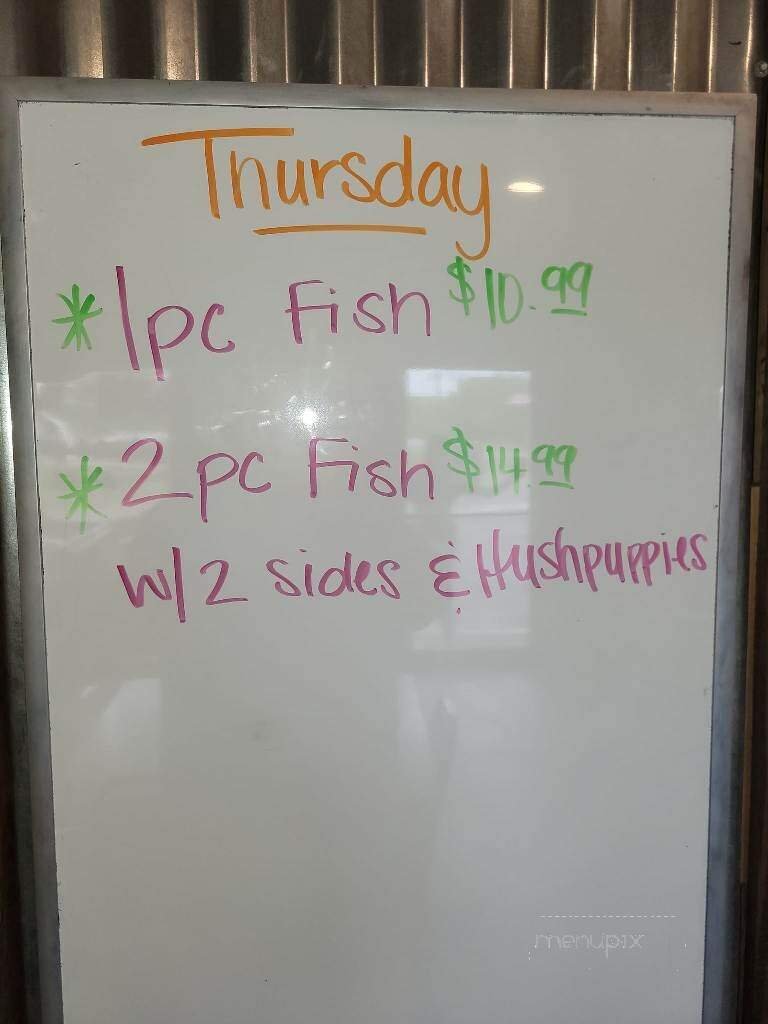 Thursday
* 1pc Fish $10.99
* 2pc Fish $14.99
w/2 sides & Hushpuppies
menupix